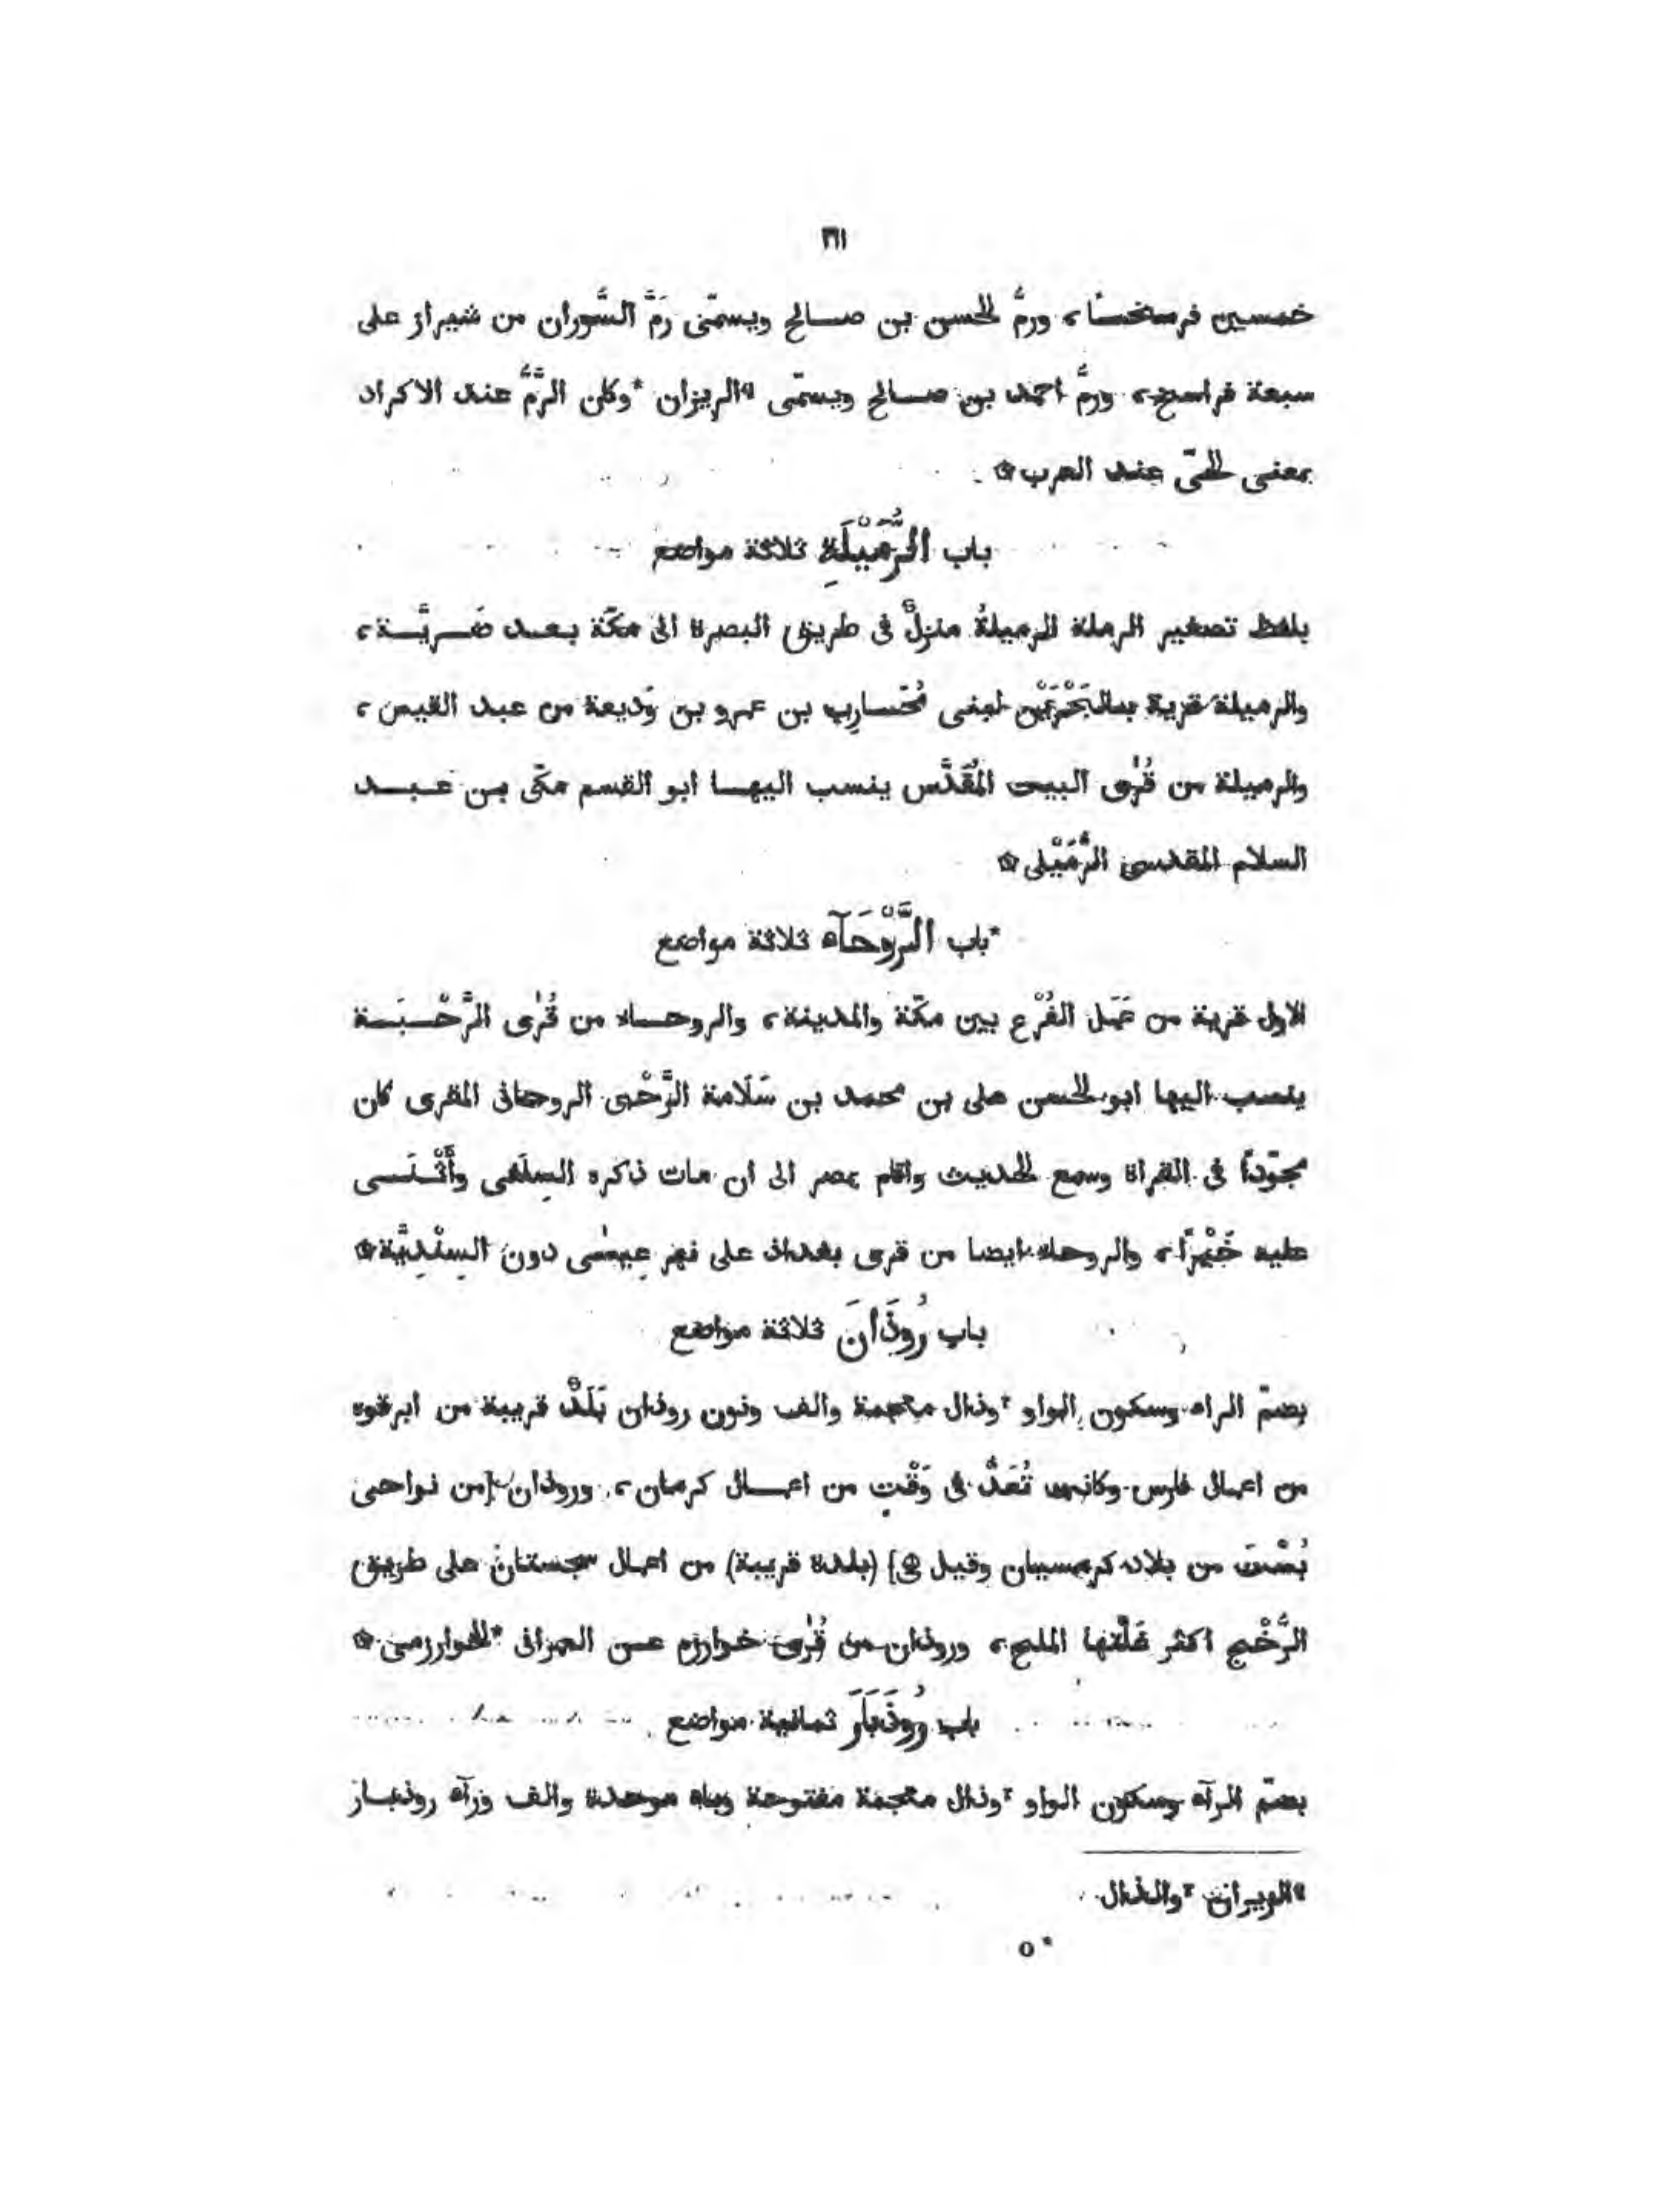 ٢١١
خمسين فرسخًا، ورمُّ الحسن بن صالح ويسمّى رَمَّ السُّوران من شيراز على
سبعة فراسخ، ورمُّ احمد بن صالح ويسمّى الريزان *وكلن الرَّمُّ عند الاكراد
بمعنى الحىّ عند العرب۞
باب الرُّمَيْلَةِ ثلاثة مواضع
بلفظ تصغير الرملة الرميلةُ منزلٌ فى طريق البصرة الى مكّة بعد ضَريَّة،
والرميلة قرية بالبَحْرَيْن لبنى مُحَارِب بن عمرو بن وَديعة من عبد القيس،
والرميلة من قُرٰى البيت المُقَدَّس ينسب اليها ابو القسم مكّى بن عبد
السلام المقدسى الرُّمَيْلى۞
*باب الرَّوْحَآء ثلاثة مواضع
الاول قرية من عَمَل الفُرْع بين مكّة والمدينة، والروحاء من قُرٰى الرَّحْبَة
ينسب اليها ابو الحسن على بن محمد بن سَلَامة الرَّحْبى الروحانى المقرى كان
مجوّدًا فى القراة وسمع الحديث واقام بمصر الى ان مات ذكره السِلَفى وأَثْنَى
عليه خَيْرًا، والروحاء ايضا من قرى بغداد على نهر عِيسٰى دون السِنْدِيَّة۞
باب رُوذَانَ ثلاثة مواضع
بضمّ الراء وسكون الواو ٢وذال معجمة والف ونون روذان بَلَدٌ قريبة من ابرقوه
من اعمال فارس وكانت تُعَدُّ فى وَقْتٍ من اعمال كرمان، وروذان [من نواحى
بُسْتَ من بلاد كرمسيان وقيل هى] (بلدة قريبة) من اعمال سجستان على طريق
الرُّخَّج اكثر غَلَّتها الملح، وروذان من قُرٰى خوارزم عن العمرانى *الخوارزمى۞
باب رُوذَبَارَ ثمانية مواضع
بضمّ الرآء وسكون الواو ٢وذال معجمة مفتوحة وباء موحدة والف ورآء روذبار
الويران ٢والذال
٥*